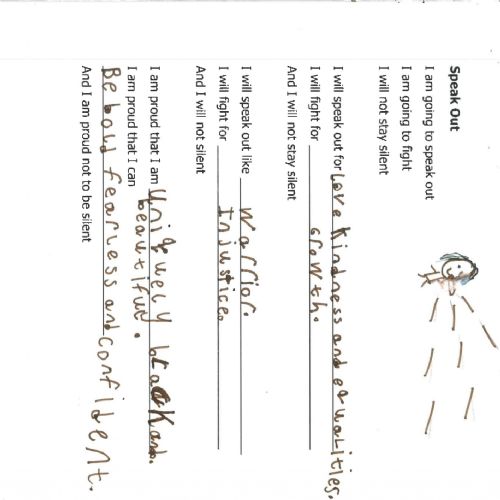 Speak Out
I am going to speak out
I am going to fight
I will not stay silent
I will speak out for Love kindness and equalities.
I will fight for growth.
And I will not stay silent
I will speak out like Warrior.
I will fight for Injustice.
And I will not silent
I am proud that I am Uniquely black and.
beautiful.
I am proud that I can
Be bold fearless and confident.
And I am proud not to be silent